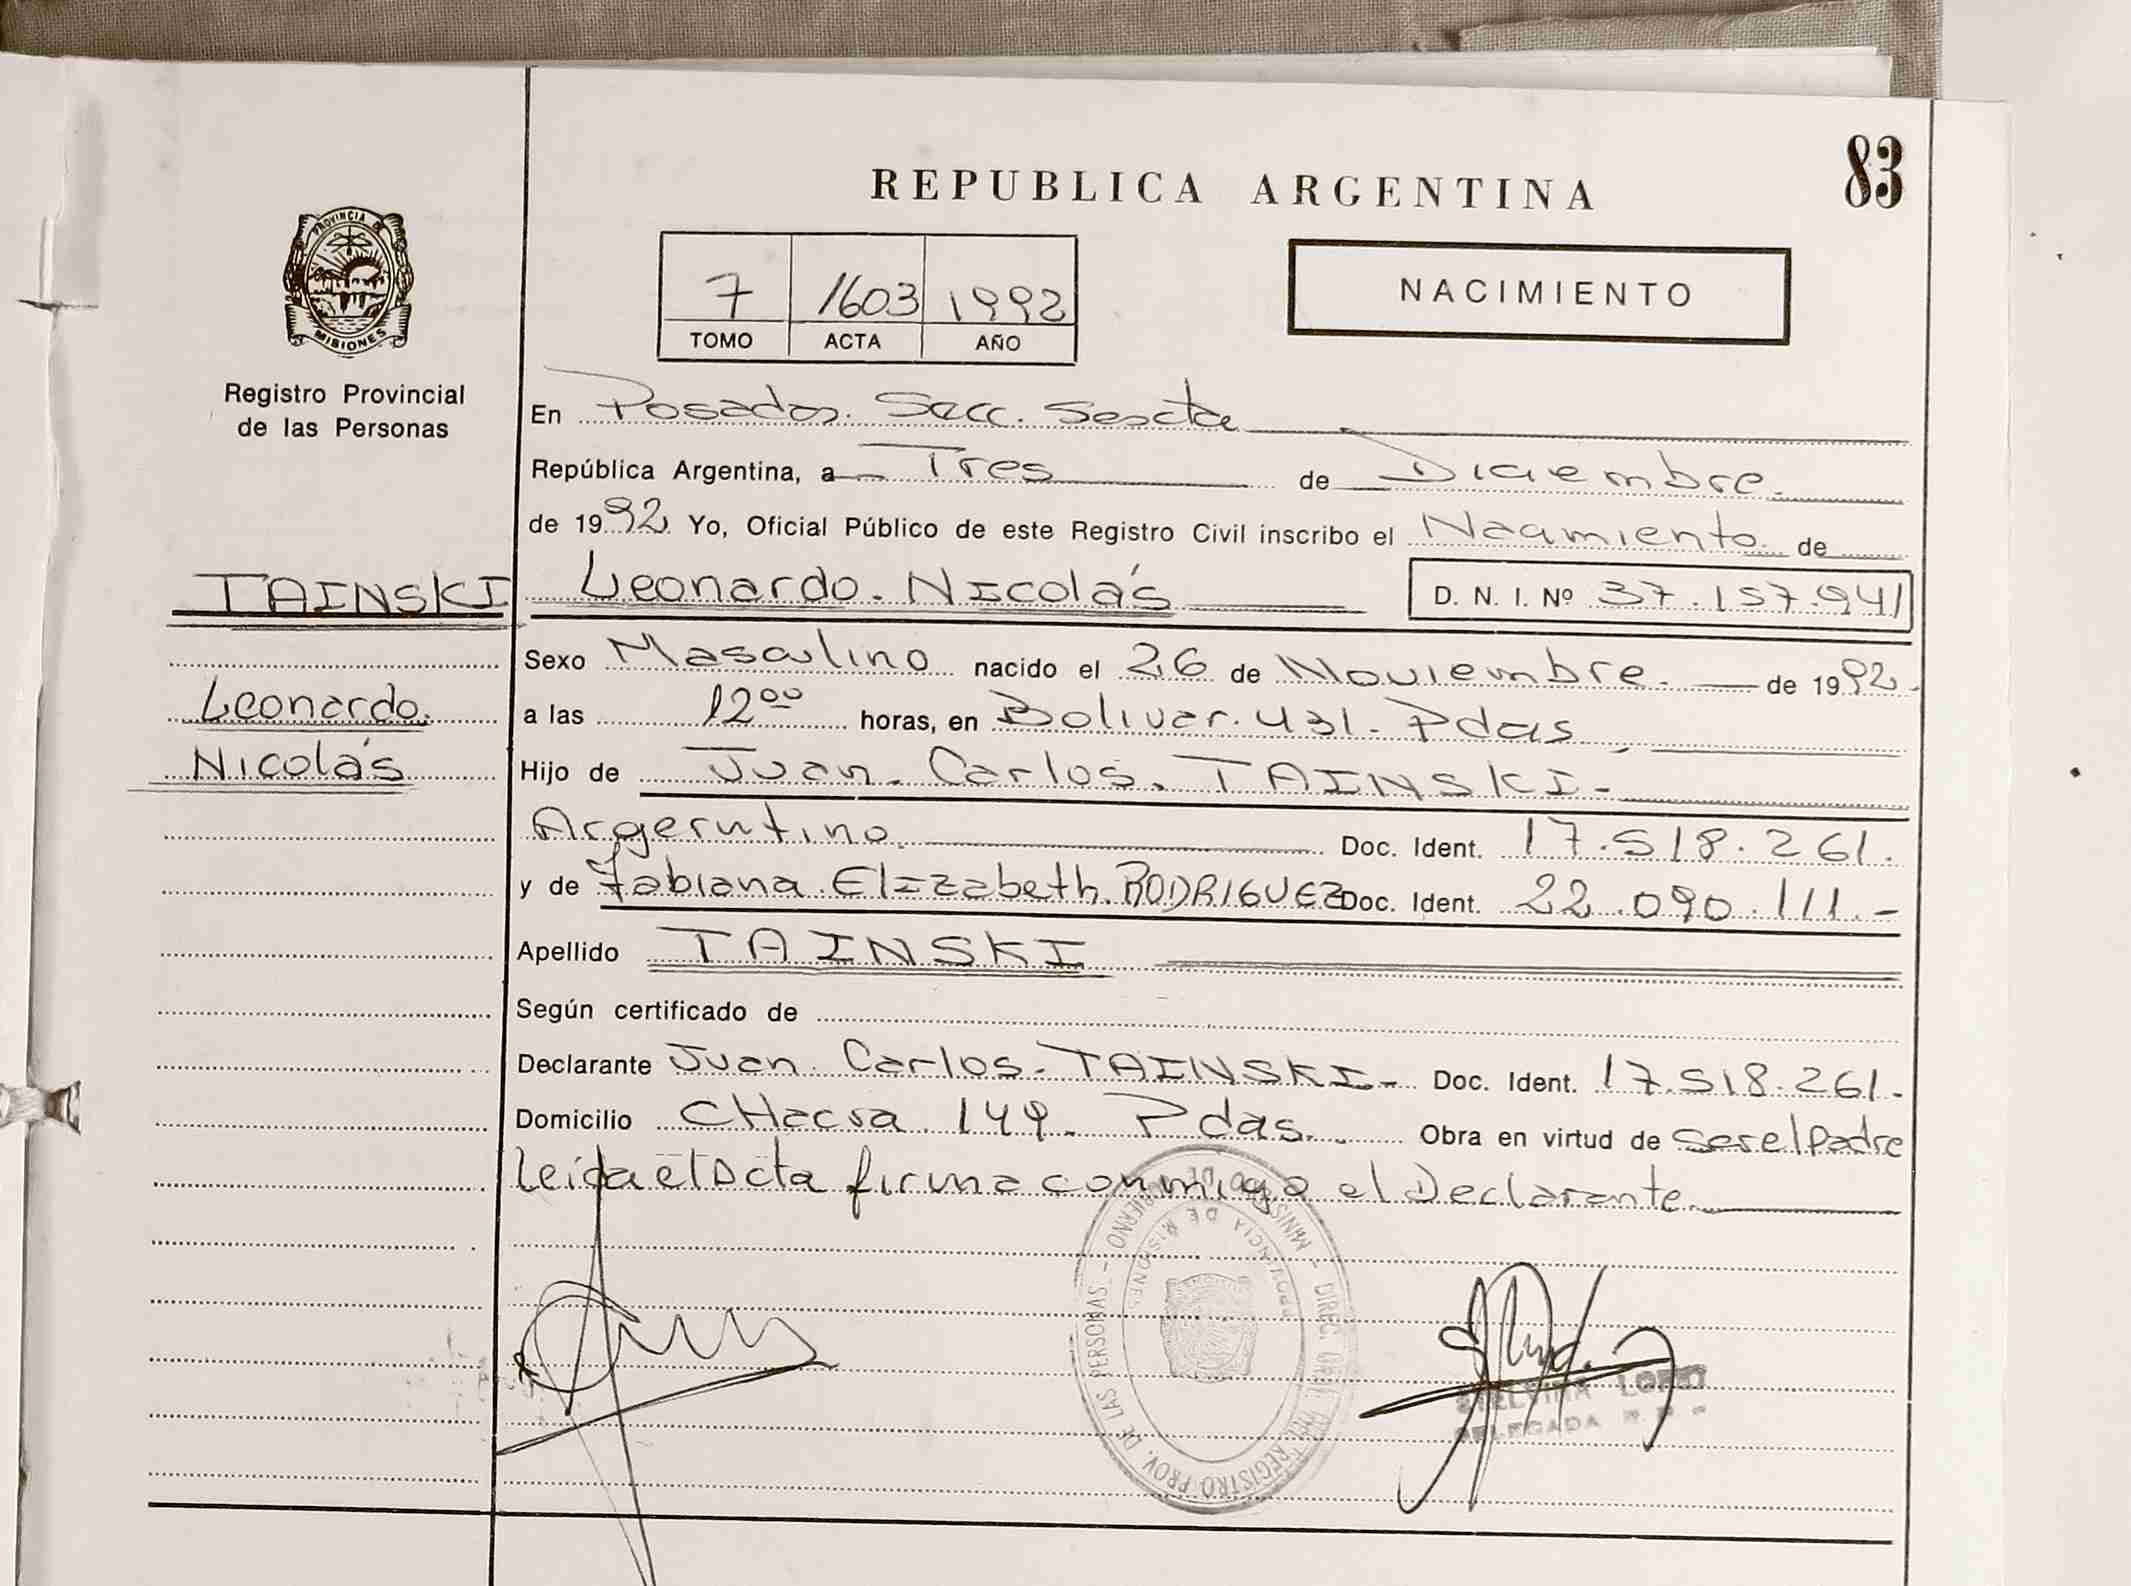 83
REPUBLICA ARGENTINA
PROVINCIA DE
MISIONES
Registro Provincial
de las Personas
7 1603 1992
TOMO ACTA AÑO
NACIMIENTO
En Posadas. Secc. Sexta
República Argentina, a Tres de Diciembre.
de 1992 Yo, Oficial Público de este Registro Civil inscribo el Nacimiento de
TAINSKI Leonardo. Nicolás D. N. I. Nº 37.157.941
Sexo Masculino nacido el 26 de Noviembre. de 1992.
Leonardo. a las 12⁰⁰ horas, en Bolivar. 431. Pdas
Nicolás Hijo de Juan. Carlos. TAINSKI.-
Argerntino. Doc. Ident. 17.518.261.
y de Fabiana. Elizabeth. RODRIGUEZ Doc. Ident. 22.090.111.-
Apellido TAINSKI
Según certificado de
Declarante Juan. Carlos. TAINSKI.- Doc. Ident. 17.518.261.
Domicilio CHacra. 149. Pdas. Obra en virtud de ser el Padre
Leida el Acta firma conmigo el Declarante.
MINIST. DE GOBIERNO - DIREC. GRAL. DEL REGISTRO PROV. DE LAS PERSONAS -
PROVINCIA DE MISIONES
LOPEZ
DELEGADA